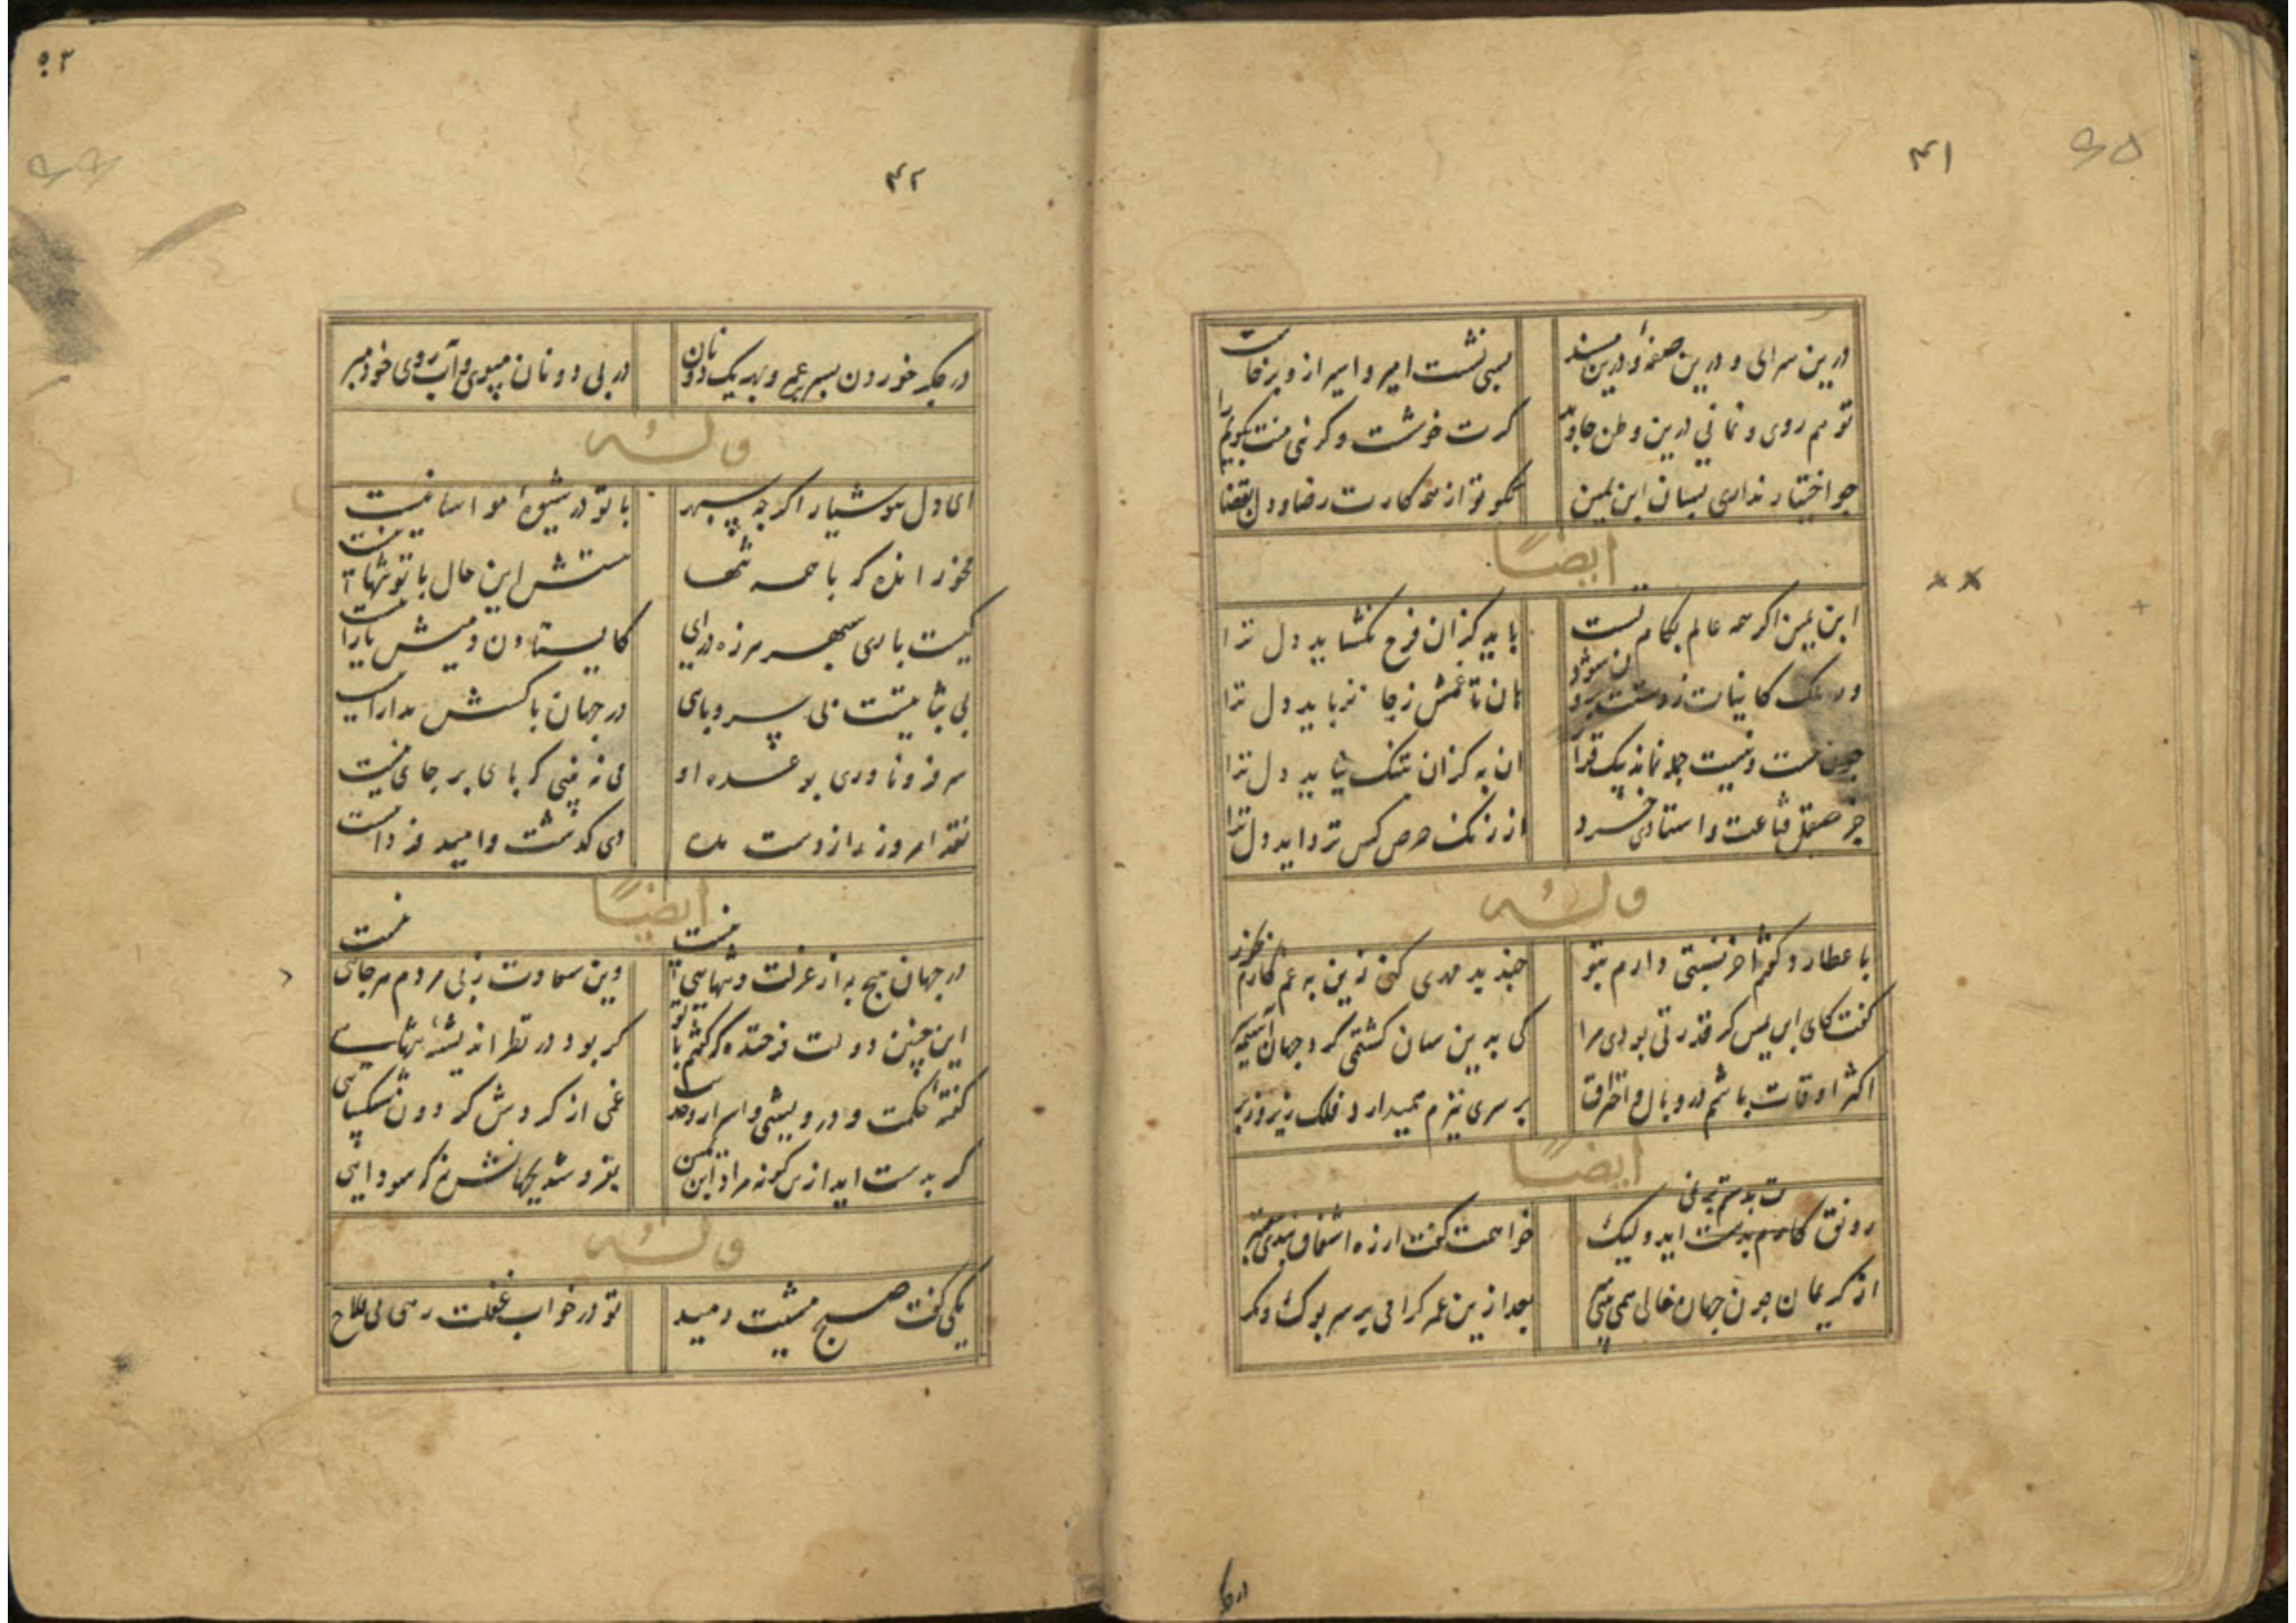 ۴۱
درین سرای و درین صفه و درین مسند
بسی نشست امیر و اسیر ازو برخاست
تو هم روی و نمانی درین وطن جاوید
کرت خوشت و کرنی منت بکویم را
جو اختیار نداری بسان ابن یمین
نکو تو از همه کارت رضا و دل بقضا
ایضاً
ابن یمین اکر همه عالم بکام تست
باید کزان فرح نکشاید دل ترا
ور ملک کاینات ز دستت برون شود
هان تا غمش ز جا نرباید دل ترا
چون هست و نیست جمله نماند بیک قرار
ان به کزان بتنک نیاید دل ترا
جز صیقل قناعت و استادی خرد
از زنک حرص کس نزداید دل ترا
وله
با عطارد کفتم اخر نسبتی دارم بتو
چند بد مهری کنی زین به غم کارم بخور
کفت کای ابن یمین کر قدرتی بودی مرا
کی بدین سان کشتمی کرد جهان آسیمه
اکثر اوقات باشم در وبال و احتراق
بر سری نیزم همیدارد فلک زیر و زبر
ایضاً
رونق کارم بدست اید ولیک
خواهمت کفت ارزه اشفاق
از کریمان چون جهان خالی همی بینی
بعد ازین عمر کرامی بر سر بوک و مکر
۴۲
در جکر خوردن بسر بر عمر و بهر یک دو نان
در پی دونان مپوی و آب روی خود مبر
وله
ای دل هوشیار اکر چه سپهر
با تو در شیوهٔ مواسا نیست
مخور انده که با همه تنها
هستش این حال با تو تنها نیست
کیست باری سپهر هرزه درای
کایستادن دمیش یارا نیست
بی ثباتیست بی سر و پای
در جهان با کسش مدارا نیست
سر فرو ناوری بوعده او
می نه بینی که پای بر جای نیست
نقد امروز را ز دست مده
دی کذشت و امید فردا نیست
ایضاً
در جهان هیچ به از عزلت و تنهایی نیست
وین سعادت ز پی مردم هرجایی نیست
این چنین دولت فرخنده که کفتم با تو
کر بود در نظر اندیشهٔ تنهایی
کفتهٔ حکمت و درویشی و اسرار وحدت
غمی از کردش کردون شکیبایی
کر بدست اید ازین کونه مراد ابن یمین
بفروشد بجهانش نه که سودایی
وله
یکی کفت صبح مشیبت دمید
تو در خواب غفلت رهی بی فلاح